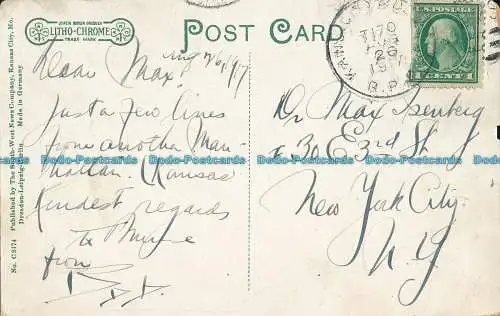 LITHO-CHROME
TRADE MARK
POST CARD
1 CENT 1
No. C3174 Published by The South-West News Company, Kansas City, Mo.
Dresden-Leipzig-Berlin Made in Germany
Dear Max,
Just a few lines
from another Man-
hattan. (Kansas)
Kindest regards
to Minnie
from
Dr Max Isenberg
30 E 3rd St
New York City.
N.Y.
Dodo-Postcards Dodo-Postcards Dodo-Postcards Dodo-Postcards
Dodo-Postcards Dodo-Postcards Dodo-Postcards Dodo-Postcards